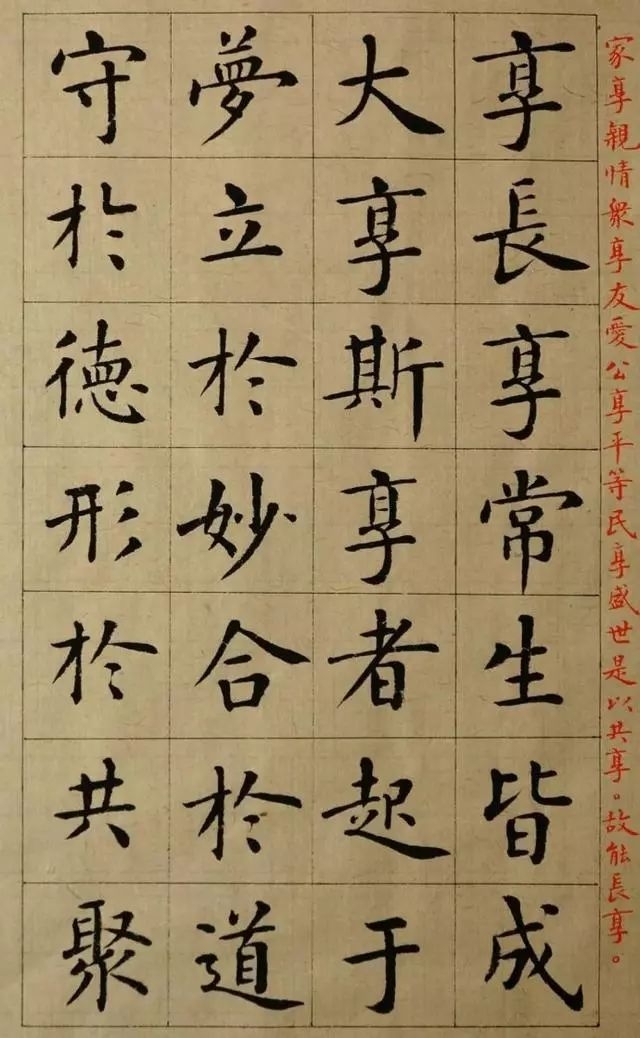 家享親情衆享友愛公享平等民享盛世是以共享。故能長享。
享長享常生皆成
大享斯享者起于
夢立於妙合於道
守於德形於共聚